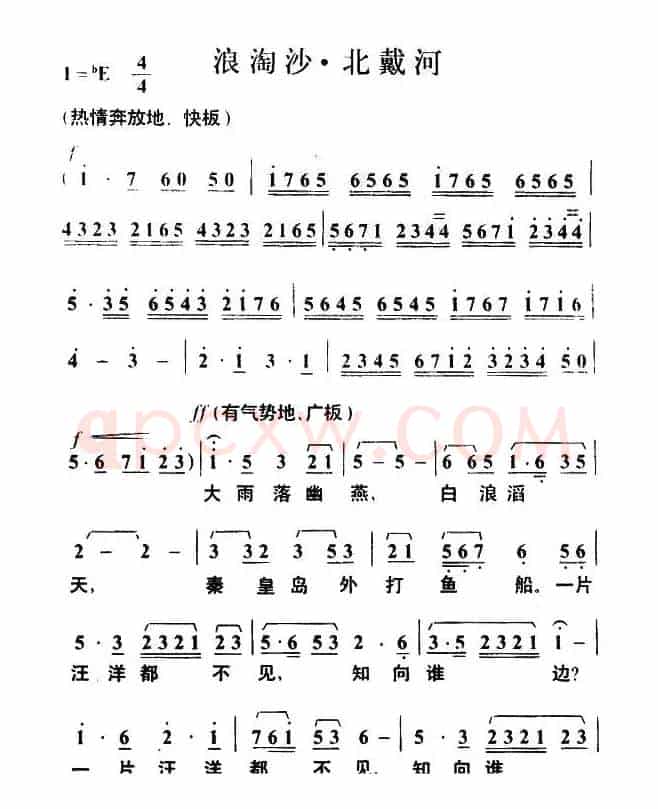 浪淘沙·北戴河
1=♭E 4/4
(热情奔放地、快板)
f
(i · 7 60 50 | i765 6565 i765 6565 |
4323 2165 4323 2165 | 5671 2344 5671 2344 |
5 · 35 6543 2176 | 5645 6545 1767 1716 |
4 – 3 – | 2 · i 3 · 1 | 2345 6712 3234 50 |
ff (有气势地、广板)
f
5 · 6 71 23) | i · 5 3 21 | 5 – 5 – | 6 65 1·6 35 |
大雨落幽燕, 白浪滔
2 – 2 – | 3 32 3 53 | 21 567 6 56 |
天, 秦皇岛外打鱼船。一片
5 · 3 2321 23 | 5·6 53 2 · 6 | 3·5 2321 1 – |
汪洋都不见, 知向谁边?
i · 6 2 · i | 761 53 6 – | 5 · 3 2321 23 |
一片汪洋都不见, 知向谁
qpcxw.com